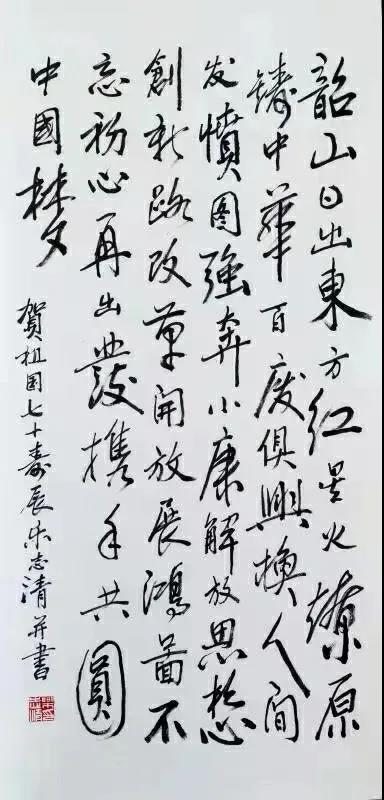 韶山日出東方红星火燎原
鑄中華百废俱興換人间
发憤图強奔小康解放思想
創新路改革開放展鴻啚不
忘初心再出發携手共圓
中國梦
賀祖国七十寿辰 志清并書